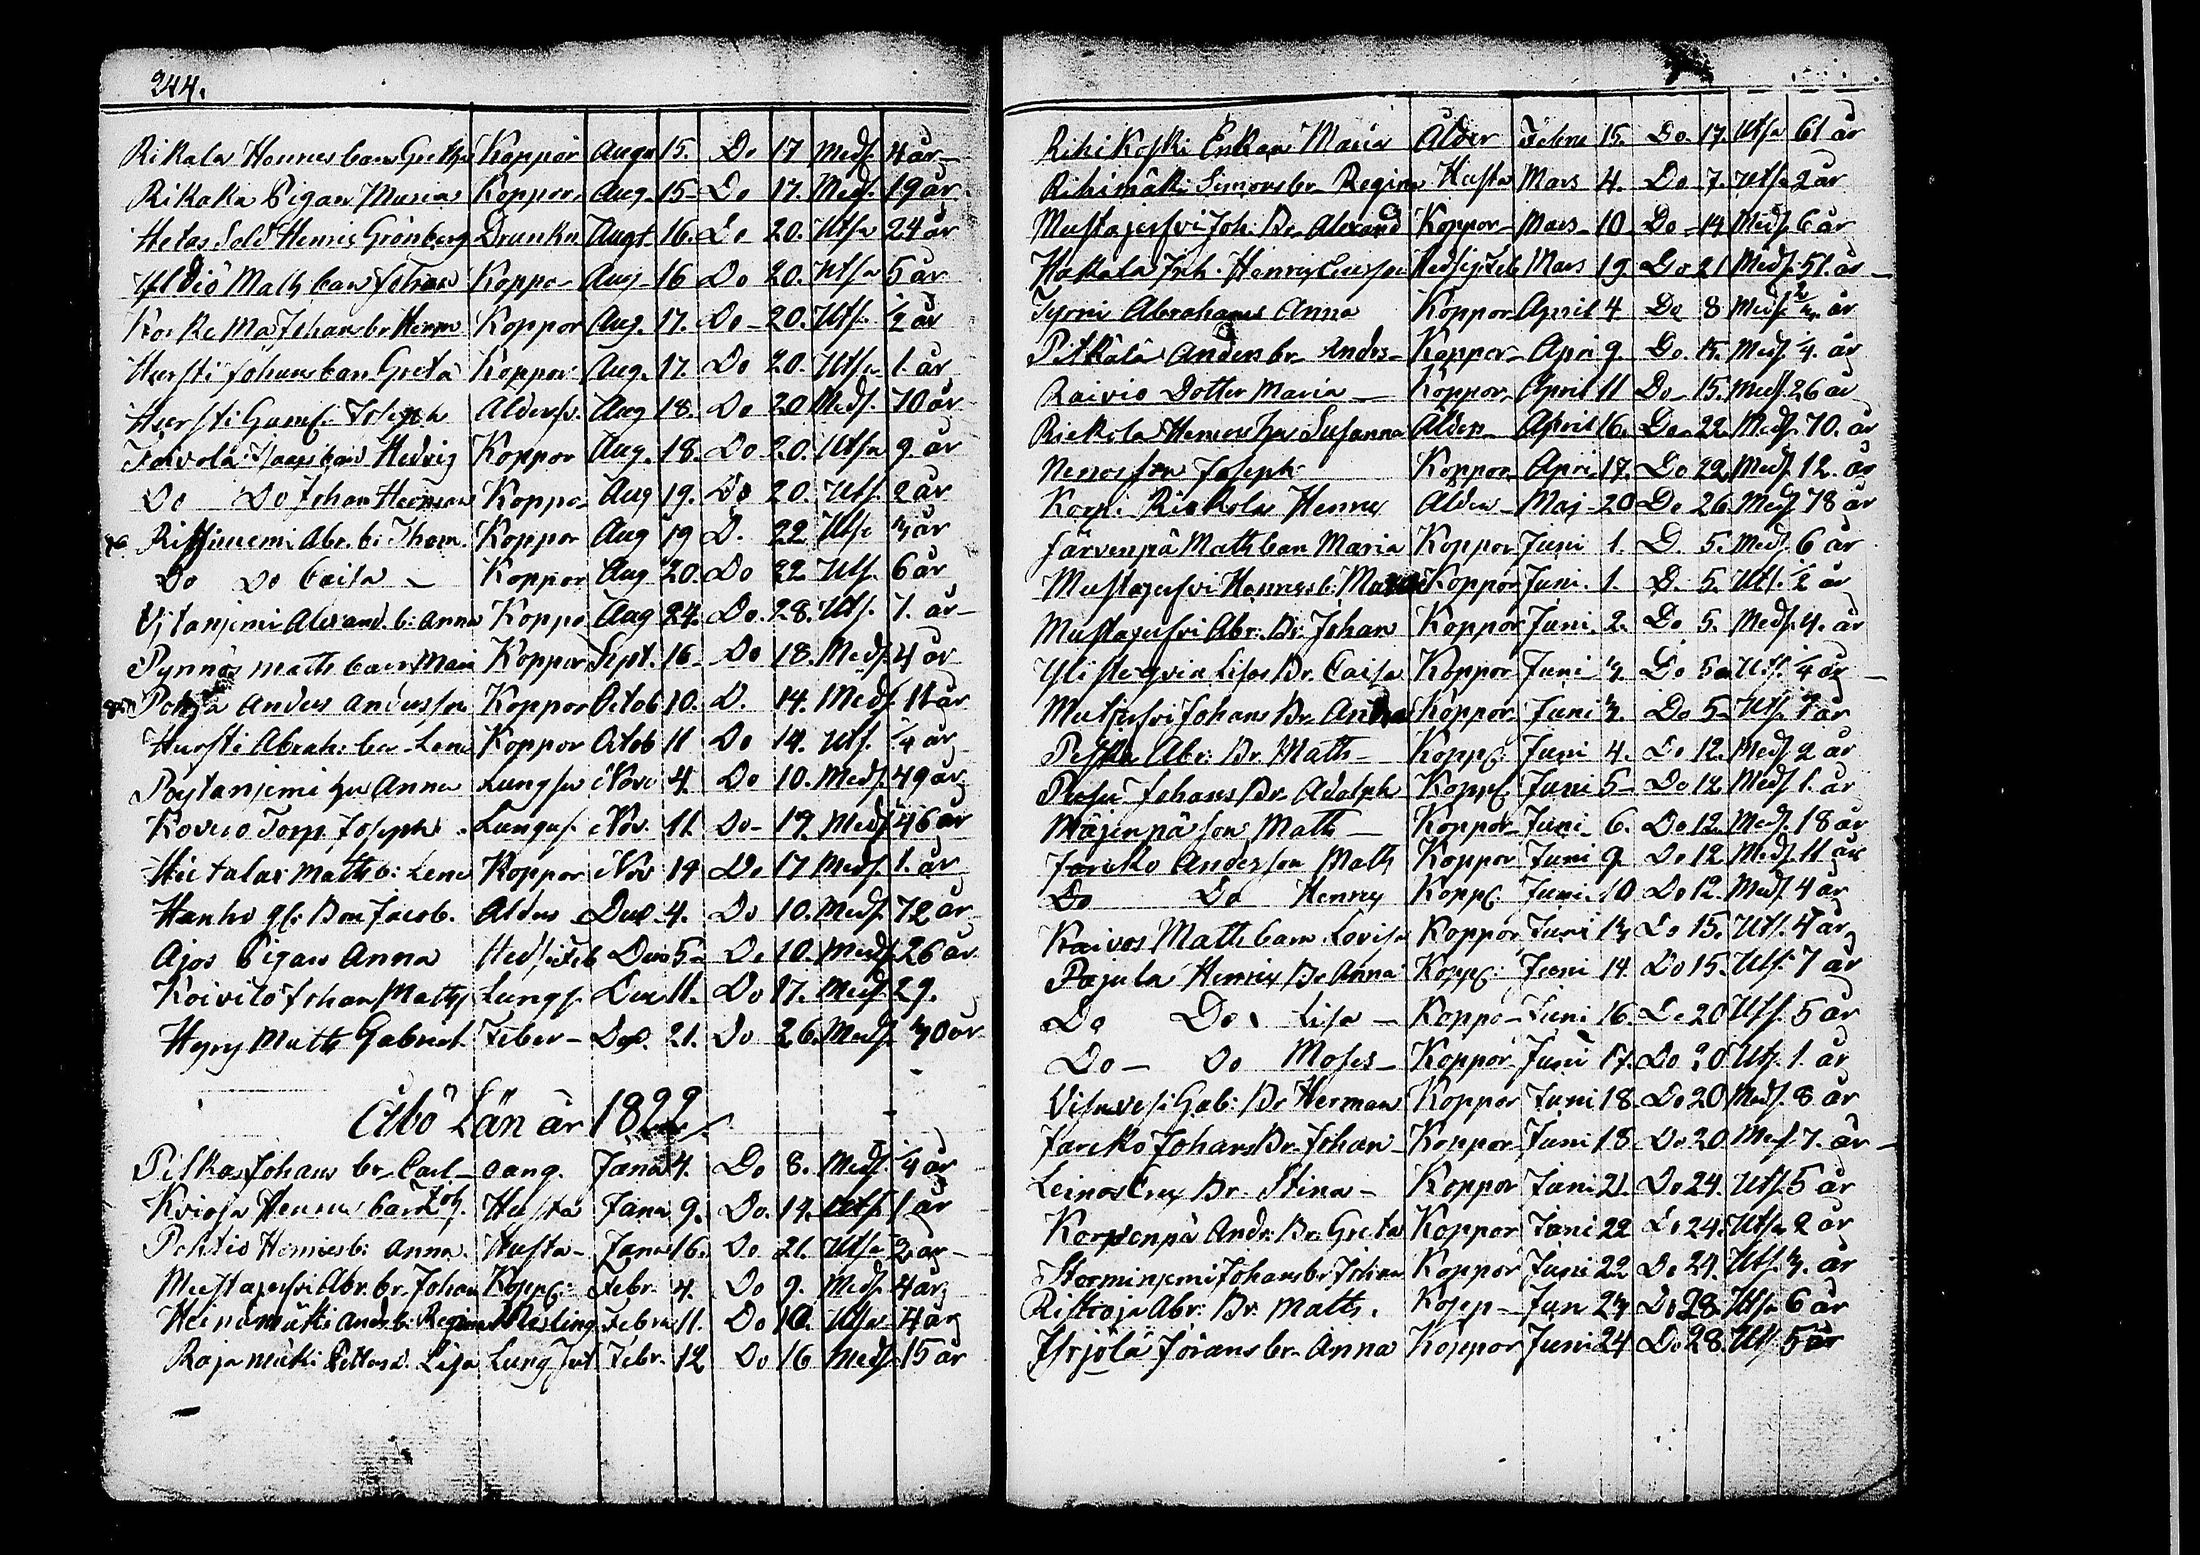 244.
Rikala Henners barn Gretha Koppor Augu 15. Do 17 Medf. 4 år
Rikala Pigan Maria Koppor Aug 15 Do 17. Medf. 19 år
Hetas Sold Henric Grönberg Drunkn Augt 16. Do 20. Utfa 24 år
Math barn Johan Koppo Aug 16 Do 20. Utfa 5 år
Johans br Herm Koppor Aug. 17. Do 20. Utfa ½ år
Hursti Johans barn Greta Koppor Aug. 17 Do 20. Utfa 1. år
Hursti Gamf. Joseph Aldersv. Aug 18. Do 20 Medf. 70 år
Toivola barn Hedvig Koppor Aug. 18. Do 20. Utfa 9 år
Do Do Johan Herman Koppo Aug 19. Do 20. Utf. 2 år
Abr. b: Thom. Koppor Aug 19 D. 22 Utf. 3 år
Do Do Caisa Koppor Aug 20. Do 22 Utf. 6 år
Alexand. b: Anna Koppo Aug 24. Do. 28. Utf. 1. år
Pynnös Math barn Maria Koppor Sept. 16 Do 18. Medf. 4 år
Pohja Anders Andersson Koppor Octob 10. D. 14. Medf. 11 år
Hursti Abrah: ba Lena Koppor Octob 11 Do 14. Utf. ¼ år
hu Anna Lungso Nov 4. Do 10. Medf. 49 år
Torp. Joseph Lungs. Nov. 11. Do 19. Medf. 46 år
Hietalas Math b: Lena Koppor Nov 14 Do 17 Medf. 1. år
Hanho gl: Bon Jacob. Alders Dec 4. Do 10. Medf. 72 år
Ajos Pigan Anna Hetsigfeb Dec 5 Do 10. Medf. 26 år
Koivito Johan Maths Lungs. Dec 11. Do 17. Medf. 29.
Hyry Math Gabriel Feber Dec. 21. Do 26. Medf. 30 år
Åbo Län år 1822.
Pitka Johans br Carl oang. Janu 4. Do 8. Medf. ¼ år
Henrics barn Joh. Husta Janu 9. Do. 14. Utf. 1 år
Pohtio Henrics b: Anna. Husta Janu 16. Do 21. Utfa 2 år
Mustajerfvi Abr. br. Johan Kopp: Febr. 4. Do 9. Medf. 4 år
Heinimäki And. b: Regina Messling Febru 11. Do 16. Utfa 4 år
Rajamäki Lisa Lung Febr. 12 Do 16 Medf. 15 år
Rihikoski Enkan Maria Ålder Febru 15. Do. 17. Utfa 61 år
Rihimäki Simons br Regina Husta Mars 4. Do 7. Utfa 2 år
Mustajerfvi Joh. Br. Alexand Koppor Mars 10 Do 14 Medf. 6 år
Hakala Inh. Henric Hetsigfeb Mars 19 Do 21 Medf. 51. år
Tyoni Abrahams Anna Koppor April 4 Do 8 Medf. år
Pitkälä Anders br Anders Koppor Apri 9 Do 15. Medf. ¼. år
Raivio Dotter Maria Koppor April 11 Do 15. Medf. 26 år
Riekola Hu Susanna Alder April 16. Do 22 Medf. 70. år
son Joseph Koppor Apri 17. Do 22 Medf. 12. år
Korpi Riekola Henric Alder Maj 20 Do 26 Medf. 78 år
Järvenpä Math barn Maria Koppor Juni 1. D. 5. Medf. 6 år
Mustajerfvi Henrics b: Koppor Juni 1. D. 5. Utf. ½ år
Mustajerfvi Abr: Br: Johan Koppor Juni 2. Do 5. Medf. 4. år
Br. Caisa Koppor Juni 3 Do 5 Utf. ¼ år
Johans Br. Koppor Juni 3. Do 5 Utf. 7 år
Abr: Br Math Kopp: Juni 4. Do 12. Medf. 2 år
Johans Br Adolph Kopp. Juni 5 Do 12 Medf. 1. år
Mäjenpä son Math Koppor Juni 6. Do 12. Medf. 18 år
Jareko Anders son Math Koppor Juni 9 Do 12 Medf. 11 år
Do Do Henric Kopp: Juni 10 Do 12. Medf. 4 år
Kaivos Math barn Lovisa Koppor Juni 13 Do 15. Utf. 4 år
Pajula Henrics Br Anna Kopp: Juni 14. Do 15. Utf. 7 år
Do Do Lisa Koppo Juni 16. Do 20 Utf. 5 år
Do Do Moses Koppor Juni 17. Do 20 Utf. 1. år
Visuvesi Gab: Br Herman Koppor Juni 18 Do 20 Medf. 8 år
Jareko Johans Br. Johan Koppor Juni 18. Do 20 Medf. 7. år
Leinos Br. Stina Koppor Juni 21. Do 24. Utf. 5 år
Korpenpä Andr: Br. Greta Koppor Juni 22 Do 24. Utfa 2 år
Storminjemi Johans br Johan Koppor Juni 22 Do 24. Utf. 3. år
Ristioja Abr. Br. Maths. Kopp Jun 23 Do 28 Utfa 6 år
Yrjölä Jörans br. Anna Koppor Juni 24 Do 28. Utf. 5 år